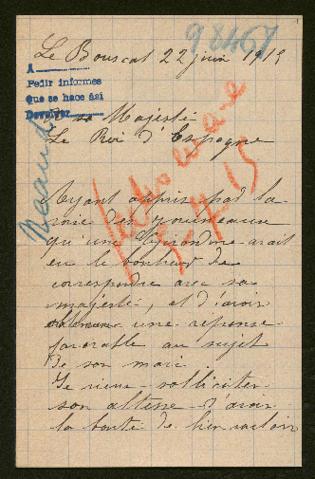 98467
Le Bouscat 22 juin 1915
A
Pedir informes
Que se hace así
Devolver
sa Majesté
Le Roi d'Espagne
Ayant appris par la
voie des journeaux
qu'une Girondine avait
eu le bonheur de
correspondre avec sa
majesté, et d'avoir
obtenue une réponse
favorable au sujet
de son mari
Je viens solliciter
son altesse d'avoir
la bonté de bien vouloir